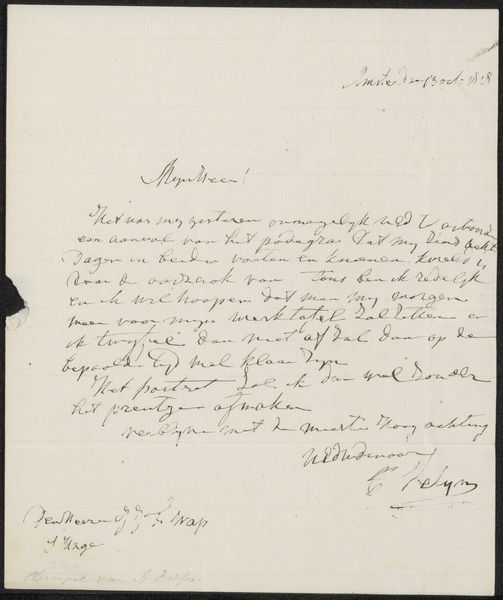 Amsterdam 13 oct. 1828
Mijn Heer!
Het was my gisteren onmogelijk UEd te antwoorden
een aanval van het podagra dat my sind acht
dagen in beide voeten en knieen kweld is
daar de oorzaak van thans ben ik redelyk
en ik wil hoopen dat man my morgen
weer voor myn werktafel zal zetten en
ik twyfel dan niet of zal dan op de
bepaalde tyd wel klaar zyn
Het portret zal ik dan wel zonder
het prentjen afmaken
verblyve met de meeste hoog achting
UEdDwdienaar
P Velyn
Den Heere J J F Wap
s Hage